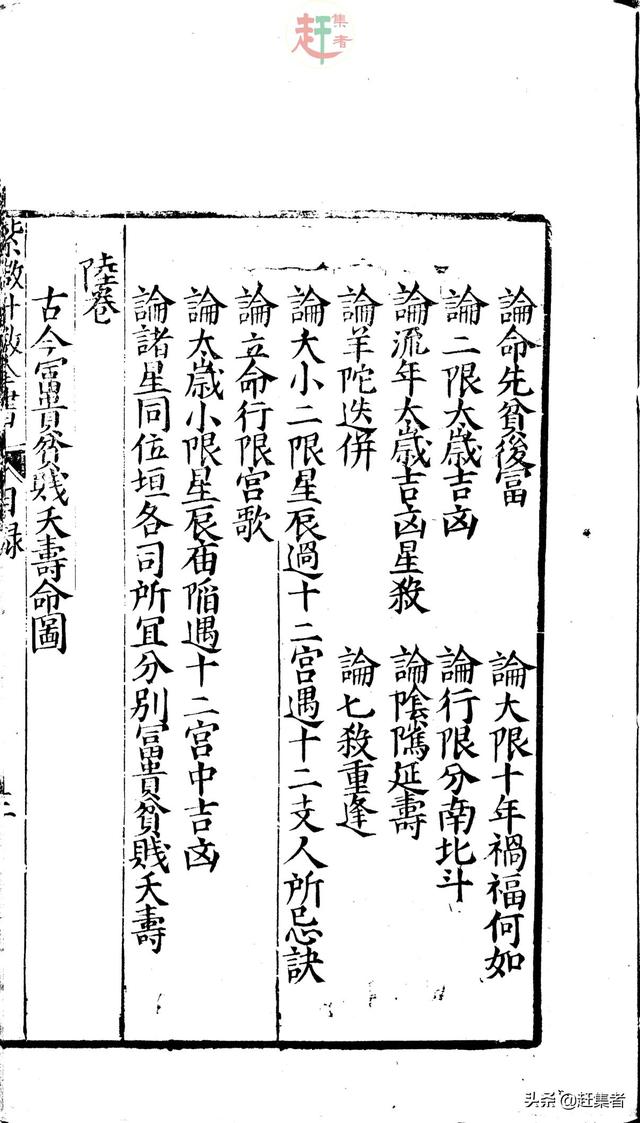 趕集者
論命先貧後富 論大限十年禍福何如
論二限太歲吉凶 論行限分南北斗
論流年太歲吉凶星殺 論陰隲延壽
論羊陀迭併 論七殺重逢
論大小二限星辰過十二宮遇十二支人所忌訣
論立命行限宮歌
論太歲小限星辰庙陥遇十二宮中吉凶
論諸星同位垣各司所宜分別冨貴貧賤夭壽
陸卷
古今冨貴貧賤夭壽命圖
紫微斗数全書 目録 二
头条 @赶集者